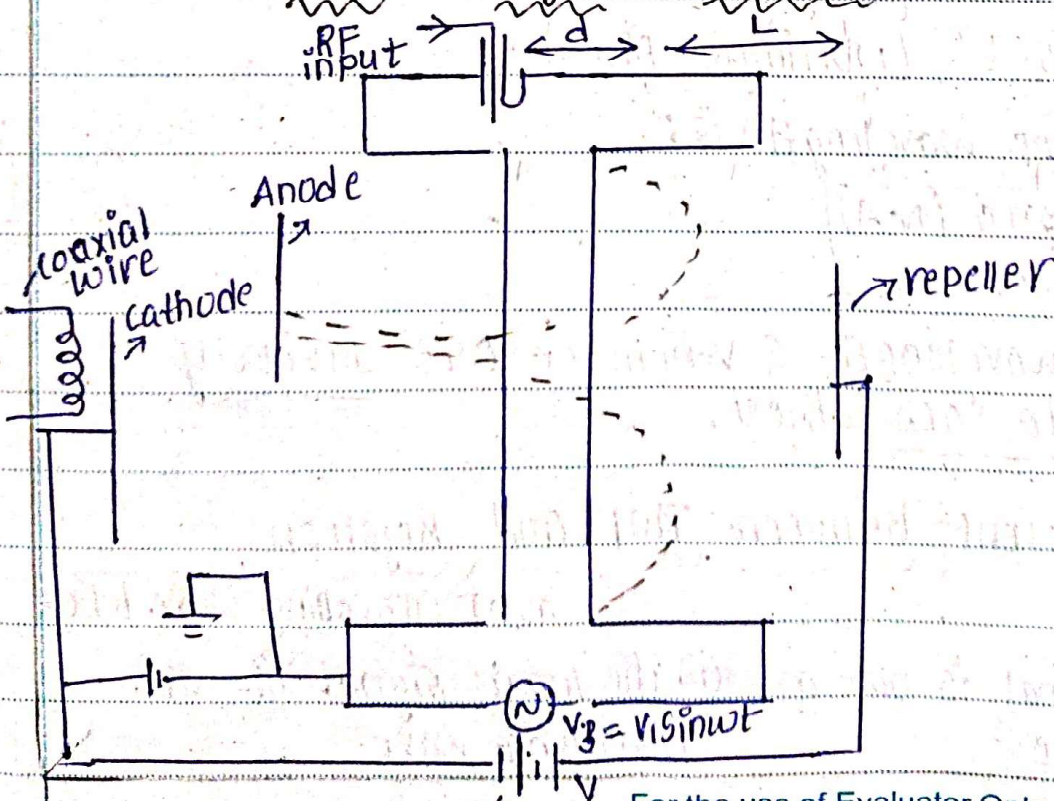 RF
input
d
L
Anode
coaxial
wire
cathode
repeller
V₃ = V₁ sinωt
V
For the use of Evaluator Onl